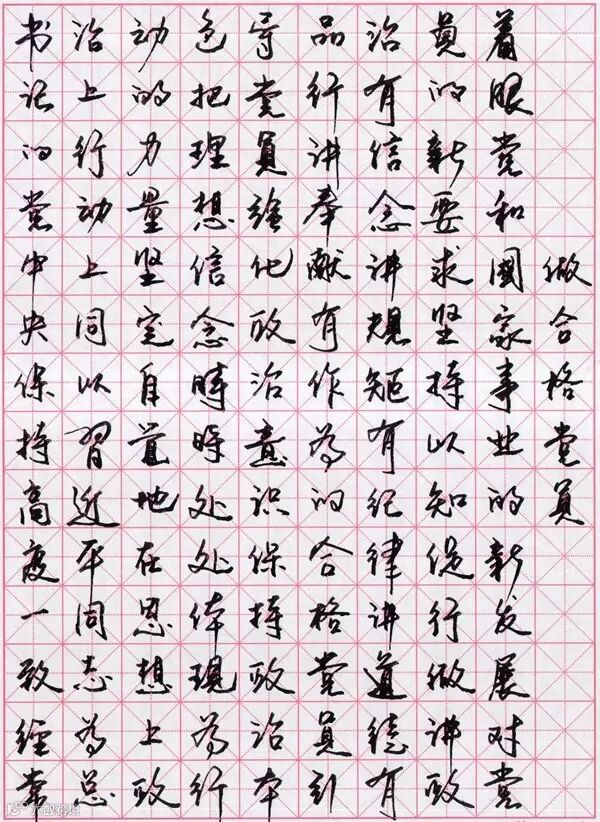 做合格党員
着眼党和國家事业的新发展对党
員的新要求坚持以知促行做讲政
治有信念讲规矩有纪律讲道德有
品行讲奉献有作為的合格党員引
导党員强化政治意识保持政治本
色把理想信念時時处处体现為行
动的力量坚定自觉地在思想上政
治上行动上同以習近平同志為总
书记的党中央保持高度一致经常